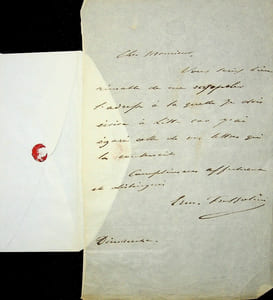 Cher Monsieur,
Vous seriez bien
aimable de me rappeler
l'adresse à laquelle je dois
écrire à car j'ai
égaré celle de vos lettres qui
la contenait
Compliments affectueux
et distingués